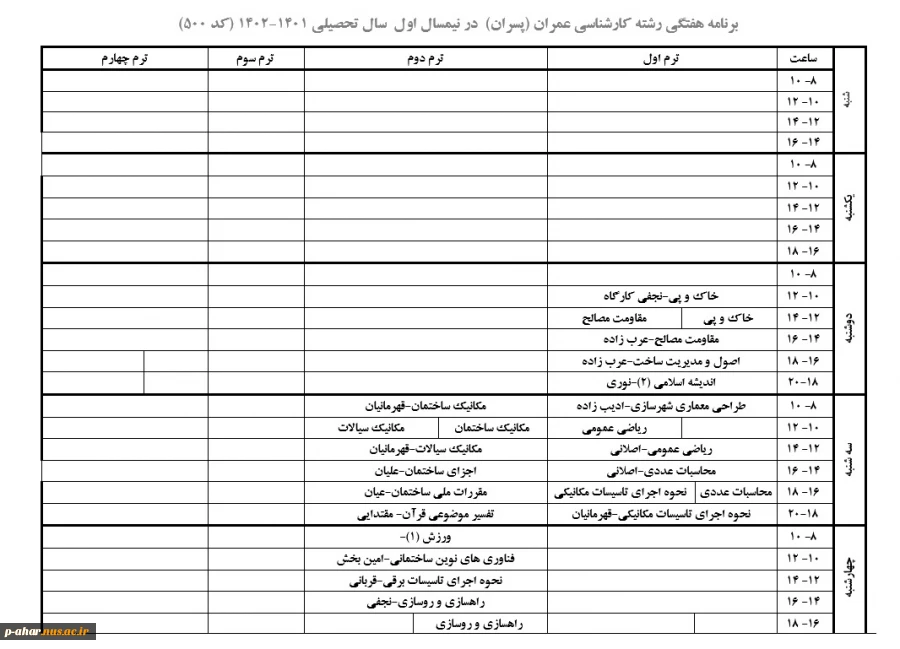 برنامه هفتگی رشته کارشناسی عمران (پسران) در نیمسال اول سال تحصیلی ۱۴۰۱-۱۴۰۲ (کد ۵۰۰)
ساعت ترم اول ترم دوم ترم سوم ترم چهارم
شنبه
۸- ۱۰
۱۰- ۱۲
۱۲- ۱۴
۱۴- ۱۶
یکشنبه
۸- ۱۰
۱۰- ۱۲
۱۲- ۱۴
۱۴- ۱۶
۱۶- ۱۸
دوشنبه
۸- ۱۰
۱۰- ۱۲ خاک و پی-نجفی کارگاه
۱۲- ۱۴ خاک و پی مقاومت مصالح
۱۴- ۱۶ مقاومت مصالح-عرب زاده
۱۶- ۱۸ اصول و مدیریت ساخت-عرب زاده
۱۸-۲۰ اندیشه اسلامی (۲)-نوری
سه شنبه
۸- ۱۰ طراحی معماری شهرسازی-ادیب زاده مکانیک ساختمان-قهرمانیان
۱۰- ۱۲ ریاضی عمومی مکانیک ساختمان مکانیک سیالات
۱۲- ۱۴ ریاضی عمومی-اصلانی مکانیک سیالات-قهرمانیان
۱۴- ۱۶ محاسبات عددی-اصلانی اجزای ساختمان-علیان
۱۶- ۱۸ محاسبات عددی نحوه اجرای تاسیسات مکانیکی مقررات ملی ساختمان-عیان
۱۸-۲۰ نحوه اجرای تاسیسات مکانیکی-قهرمانیان تفسیر موضوعی قرآن- مقتدایی
چهارشنبه
۸- ۱۰ ورزش (۱)-
۱۰- ۱۲ فناوری های نوین ساختمانی-امین بخش
۱۲- ۱۴ نحوه اجرای تاسیسات برقی-قربانی
۱۴- ۱۶ راهسازی و روسازی-نجفی
۱۶- ۱۸ راهسازی و روسازی
p-ahar.nus.ac.ir